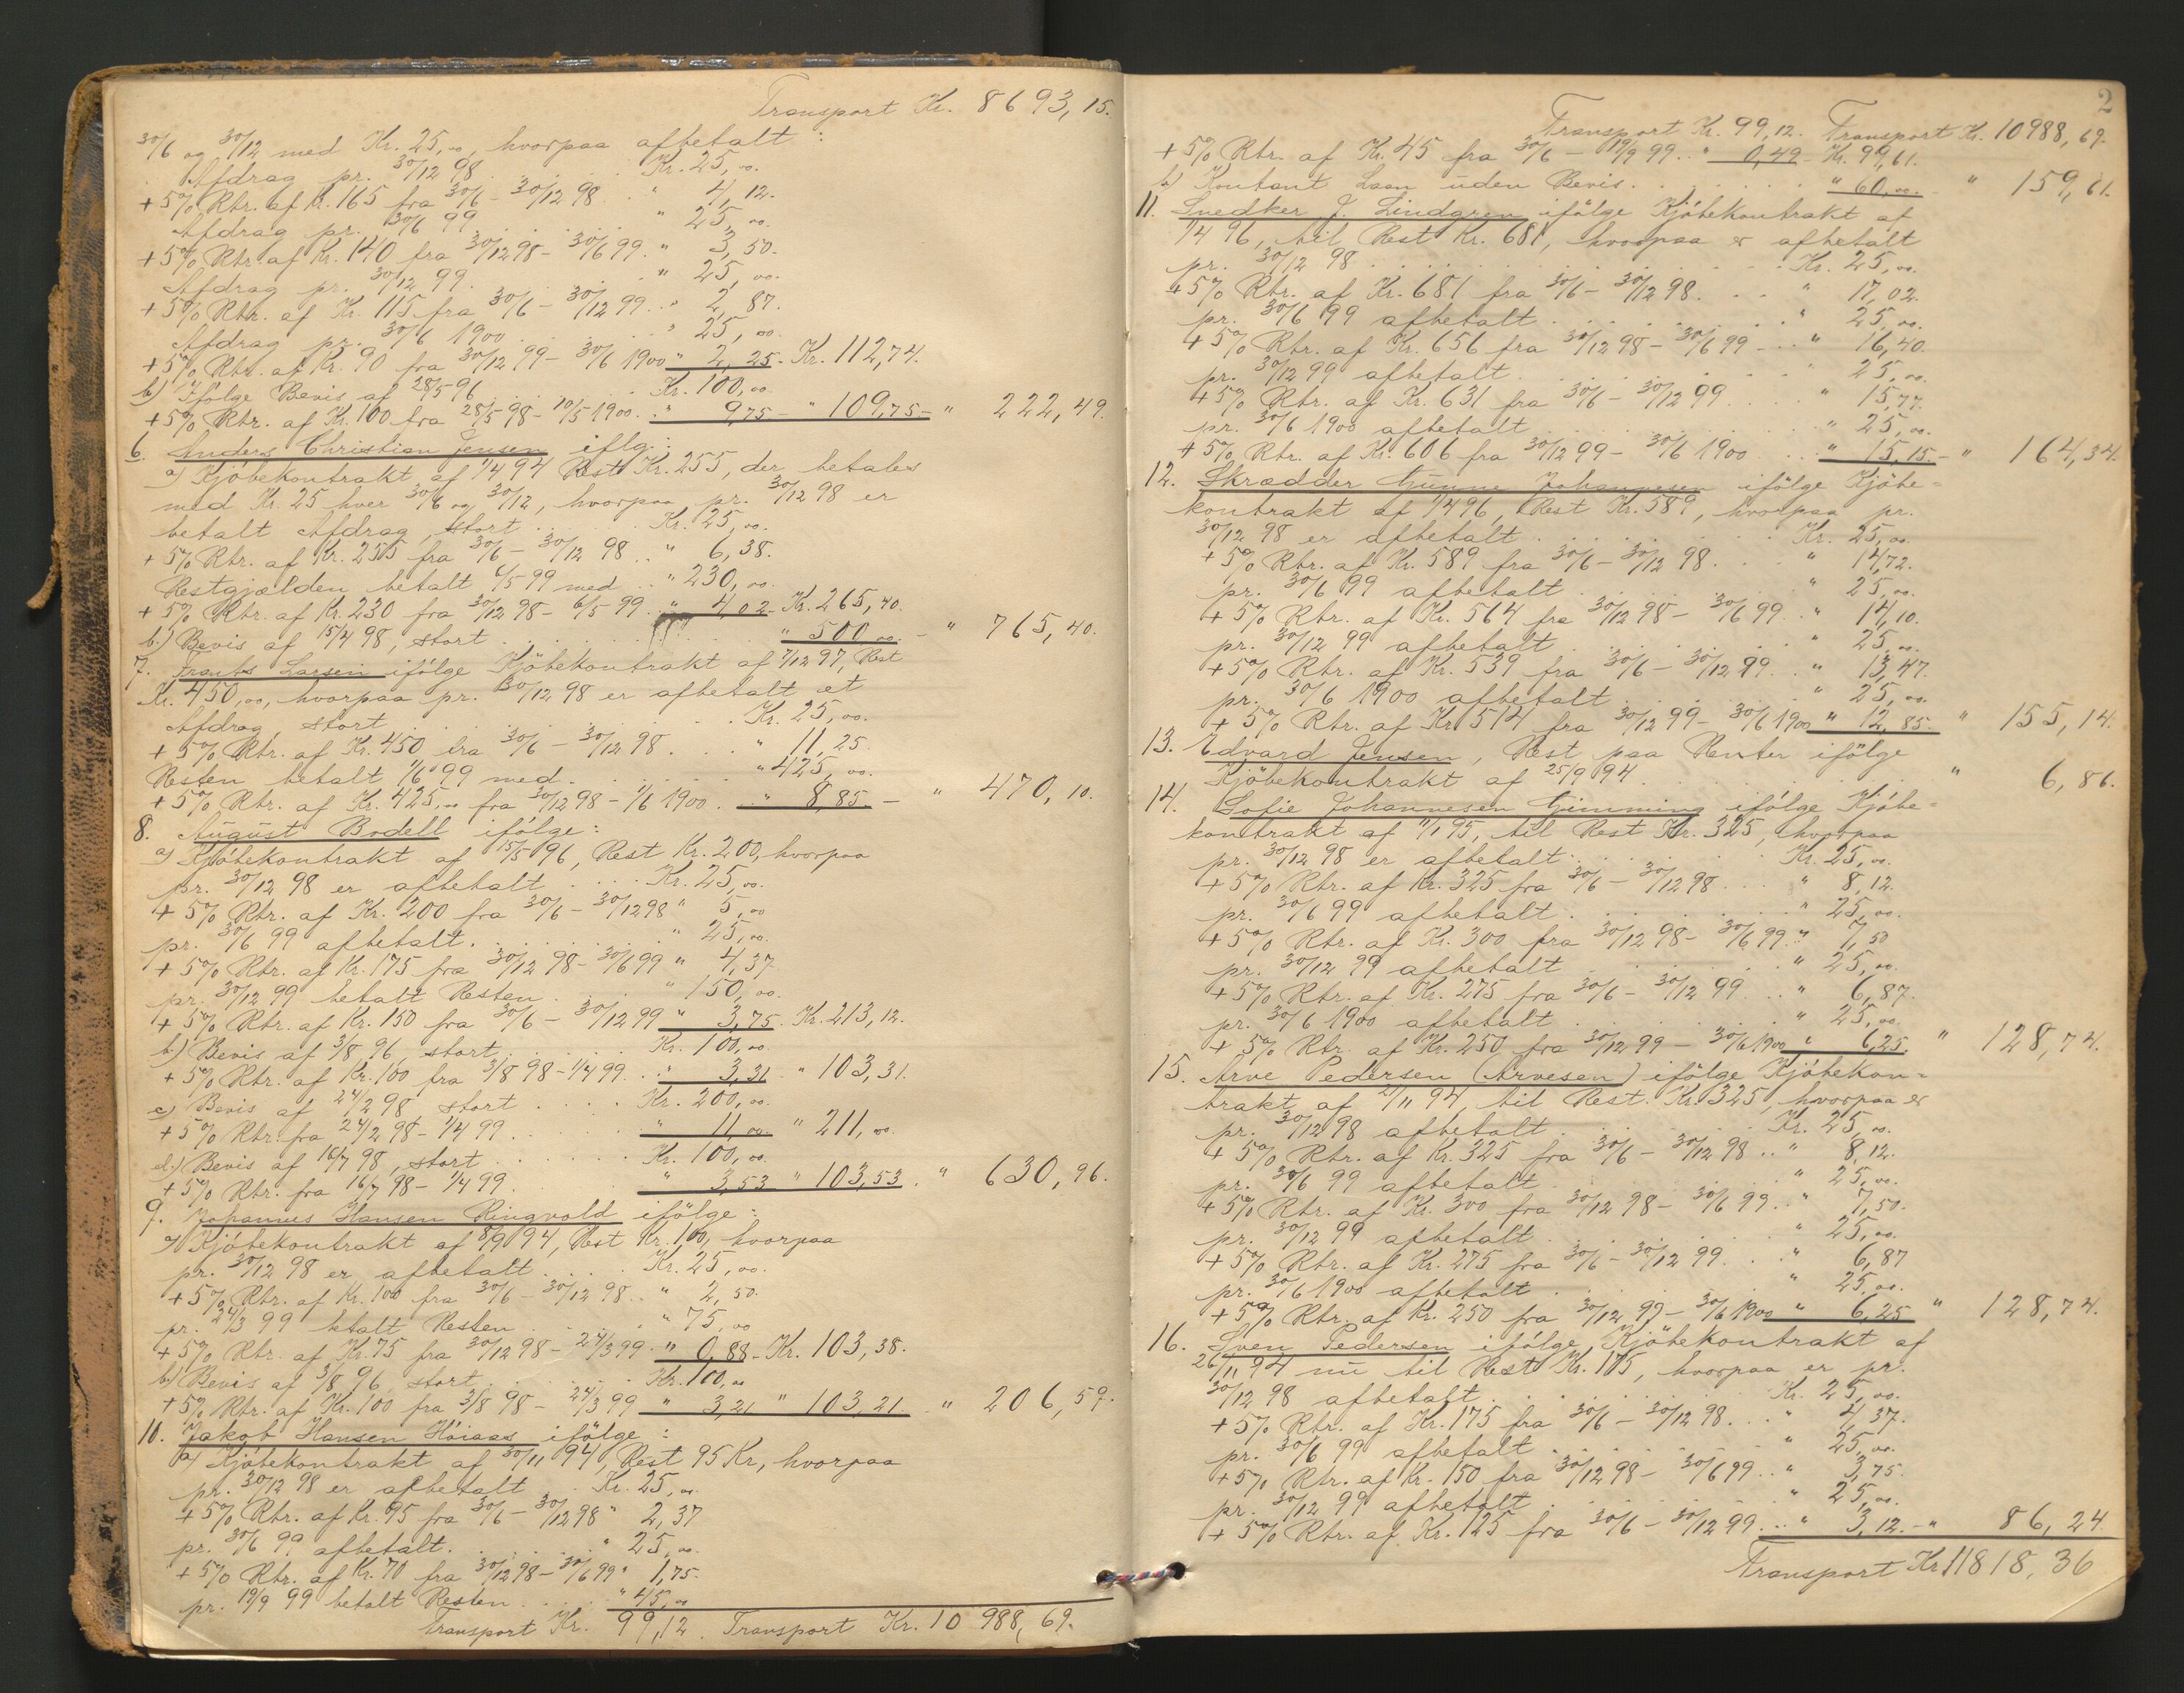 Transport Kr. 8693,15.
30/6 og 30/12 med Kr. 25,00, hvorpaa afbetalt:
Afdrag pr. 30/12 98 . . . . Kr. 25,00.
+ 5% Rtr. af Kr. 165 fra 30/6 - 30/12 98 . . " 4,12.
Afdrag pr. 30/6 99 . . . . " 25,00.
+ 5% Rtr. af Kr. 140 fra 30/12 98 - 30/6 99 . " 3,50.
Afdrag pr. 30/12 99 . . . . " 25,00.
+ 5% Rtr. af Kr. 115 fra 30/6 - 30/12 99 . . " 2,87.
Afdrag pr. 30/6 1900 . . . . " 25,00.
+ 5% Rtr. af Kr. 90 fra 30/12 99 - 30/6 1900 " 2,25. Kr. 112,74.
b) Ifølge Bevis af 28/5 96 . . . . Kr. 100,00
+ 5% Rtr. af Kr. 100 fra 28/5 98 - 10/5 1900 . . " 9,75 - " 109,75 - " 222,49.
6. Anders Christian Jensen iflg.:
a) Kjöbekontrakt af 1/4 94 Rest Kr. 255, der betales
med Kr. 25 hver 30/6 og 30/12, hvorpaa pr. 30/12 98 er
betalt Afdrag, stort . . . . Kr. 25,00.
+ 5% Rtr. af Kr. 255 fra 30/6 - 30/12 98 . . " 6,38.
Restgjælden betalt 6/5 99 med . . " 230,00.
+ 5% Rtr. af Kr. 230 fra 30/12 98 - 6/5 99 . . " 4,02 - Kr. 265,40.
b.) Bevis af 15/4 98, stort . . . . " 500,00. - " 765,40.
7. Frants Larsen ifölge Kjöbekontrakt af 7/12 97, Rest
Kr. 450,00, hvorpaa pr. 30/12 98 er afbetalt et
Afdrag, stort . . . . Kr. 25,00.
+ 5% Rtr. af Kr. 450 fra 30/6 - 30/12 98 . . . " 11,25.
Resten betalt 1/6 99 med . . . . " 425,00.
+ 5% Rtr. af Kr. 425,00 fra 30/12 98 - 1/6 1900 . . " 8,85. - " 470,10.
8. August Bodell ifölge:
a) Kjöbekontrakt af 15/5 96, Rest Kr. 200, hvorpaa
pr. 30/12 98 er afbetalt . . . . Kr. 25,00.
+ 5% Rtr. af Kr. 200 fra 30/6 - 30/12 98 " 5,00
pr. 30/6 99 afbetalt . . . . " 25,00.
+ 5% Rtr. af Kr. 175 fra 30/12 98 - 30/6 99 " 4,37
pr. 30/12 99 betalt Resten . . . . " 150,00.
+ 5% Rtr. af Kr. 150 fra 30/6 - 30/12 99 " 3,75. Kr. 213,12.
b) Bevis af 3/8 96, stort . . . . Kr. 100,00.
+ 5% Rtr. af Kr. 100 fra 3/8 98 - 1/4 99 . . " 3,31 " 103,31.
c) Bevis af 24/2 98 stort . . . . Kr. 200,00.
+ 5% Rtr. fra 24/2 98 - 1/4 99 . . . . " 11,00. " 211,00.
d.) Bevis af 16/7 98, stort . . . . Kr. 100,00.
+ 5% Rtr. fra 16/7 98 - 1/4 99 . . . . " 3,53 " 103,53 . " 630,96.
9. Johannes Hansen Ringvold ifölge:
a) Kjöbekontrakt af 8/9 94, Rest Kr. 100, hvorpaa
pr. 30/12 98 er afbetalt . . . . Kr. 25,00.
+ 5% Rtr. af Kr. 100 fra 30/6 - 30/12 98 . . " 2,50.
pr. 24/3 99 betalt Resten . . . . " 75,00
+ 5% Rtr. af Kr. 75 fra 30/12 98 - 24/3 99 . " 0,88 - Kr. 103,38.
b) Bevis af 3/8 96, stort . . . . Kr. 100,00
+ 5% Rtr. af Kr. 100 fra 3/8 98 - 24/3 99 " 3,21 " 103,21 . " 206,59.
10. Jakob Hansen Höiaas ifölge:
a) Kjöbekontrakt af 30/11 94, Rest 95 Kr, hvorpaa
pr. 30/12 98 er afbetalt . Kr. 25,00.
+ 5% Rtr. af Kr. 95 fra 30/6 - 30/12 98 " 2,37
pr. 30/6 99 afbetalt . . . . " 25,00.
+ 5% Rtr. af Kr. 70 fra 30/12 98 - 30/6 99 " 1,75.
pr. 19/9 99 betalt Resten . . . . " 45,00
Transport Kr. 99,12. Transport Kr. 10 988,69.
2
Transport Kr. 99,12. Transport Kr. 10988,69.
+ 5% Rtr. af Kr. 45 fra 30/6 - 19/9 99 . . " 0,49 - Kr. 99,61.
b) Kontant Laan uden Bevis . . . . " 60,00. - " 159,61.
11. Snedker J. Lindgren ifölge Kjöbekontrakt af
1/4 96, til Rest Kr. 681, hvorpaa er afbetalt
pr. 30/12 98 . . . . Kr. 25,00.
+ 5% Rtr. af Kr. 681 fra 30/6 - 30/12 98 . . . " 17,02.
pr. 30/6 99 afbetalt . . . . " 25,00.
+ 5% Rtr. af Kr. 656 fra 30/12 98 - 30/6 99 . . . " 16,40.
pr. 30/12 99 afbetalt . . . . " 25,00.
+ 5% Rtr. af Kr. 631 fra 30/6 - 30/12 99 . . . . " 15,77.
pr. 30/6 1900 afbetalt . . . . " 25,00.
+ 5% Rtr. af Kr. 606 fra 30/12 99 - 30/6 1900 . . . " 15,15. - " 164,34.
12. Skrædder Gunne Johannesen ifölge Kjöbe=
kontrakt af 1/4 96, Rest Kr. 589, hvorpaa pr.
30/12 98 er afbetalt . . . . Kr. 25,00.
+ 5% Rtr. af Kr. 589 fra 30/6 - 30/12 98 . . . " 14,72.
pr. 30/6 99 afbetalt . . . . " 25,00.
+ 5% Rtr. af Kr. 564 fra 30/12 98 - 30/6 99 . . " 14,10.
pr. 30/12 99 afbetalt . . . . " 25,00.
+ 5% Rtr. af Kr. 539 fra 30/6 - 30/12 99 . . " 13,47.
pr. 30/6 1900 afbetalt . . . . " 25,00.
+ 5% Rtr. af Kr. 514 fra 30/12 99 - 30/6 1900 " 12,85. " 155,14.
13. Edvard Jensen, Rest paa Renter ifölge
Kjöbekontrakt af 25/9 94 . . . . " 6,86.
14. Sofie Johannesen Gimming ifölge Kjöbe=
kontrakt af 11/1 95, til Rest Kr. 325, hvorpaa
pr. 30/12 98 er afbetalt . . . . Kr. 25,00.
+ 5% Rtr. af Kr. 325 fra 30/6 - 30/12 98 . . . " 8,12.
pr. 30/6 99 afbetalt . . . . " 25,00.
+ 5% Rtr. af Kr. 300 fra 30/12 98 - 30/6 99 . " 7,50
pr. 30/12 99 afbetalt . . . . " 25,00.
+ 5% Rtr. af Kr. 275 fra 30/6 - 30/12 99 . . . " 6,87.
pr. 30/6 1900 afbetalt . . . . " 25,00.
+ 5% Rtr. af Kr. 250 fra 30/12 99 - 30/6 1900 " 6,25. " 128,74.
15. Arve Pedersen (Arvesen) ifölge Kjöbekon=
trakt af 21/11 94, til Rest. Kr. 325, hvorpaa er
pr. 30/12 98 afbetalt . . . . Kr. 25,00.
+ 5% Rtr. af Kr. 325 fra 30/6 - 30/12 98 . . " 8,12.
pr. 30/6 99 afbetalt . . . . " 25,00.
+ 5% Rtr. af Kr. 300 fra 30/12 98 - 30/6 99 . . " 7,50.
pr. 30/12 99 afbetalt . . . . " 25,00.
+ 5% Rtr. af Kr. 275 fra 30/6 - 30/12 99 . . . " 6,87
pr. 30/6 1900 afbetalt . . . . " 25,00.
+ 5% Rtr. af Kr. 250 fra 30/12 99 - 30/6 1900 " 6,25 " 128,74.
16. Sven Pedersen ifölge Kjöbekontrakt af
26/11 94 nu til Rest Kr. 175, hvorpaa er pr.
30/12 98 afbetalt . . . . Kr. 25,00.
+ 5% Rtr. af Kr. 175 fra 30/6 - 30/12 98 . . . " 4,37.
pr. 30/6 99 afbetalt . . . . " 25,00.
+ 5% Rtr. af Kr. 150 fra 30/12 98 - 30/6 99 . . " 3,75.
pr. 30/12 99 afbetalt . . . . " 25,00.
+ 5% Rtr. af Kr. 125 fra 30/6 - 30/12 99 . . . " 3,12. - " 86,24.
Transport Kr. 11818,36